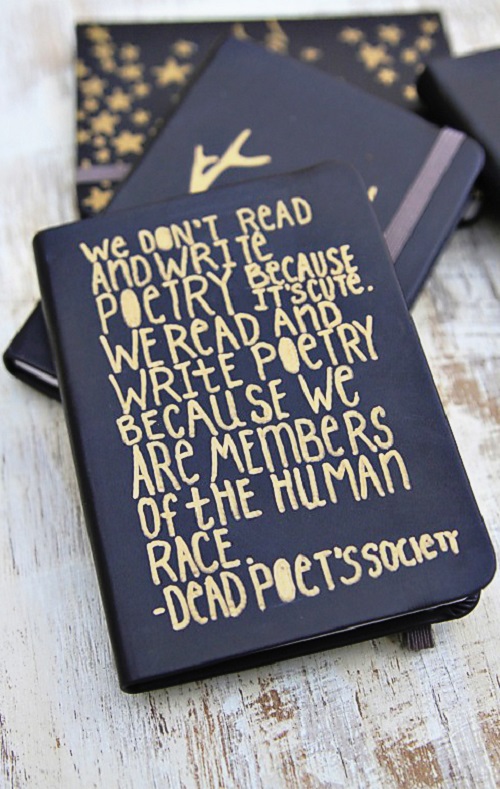 WE DON'T READ
AND WRITE
POETRY BECAUSE
IT'S CUTE.
WE READ AND
WRITE POETRY
BECAUSE WE
ARE MEMBERS
Of tHE HUMAN
RACE.
-DEAD POET'S SOCIETY